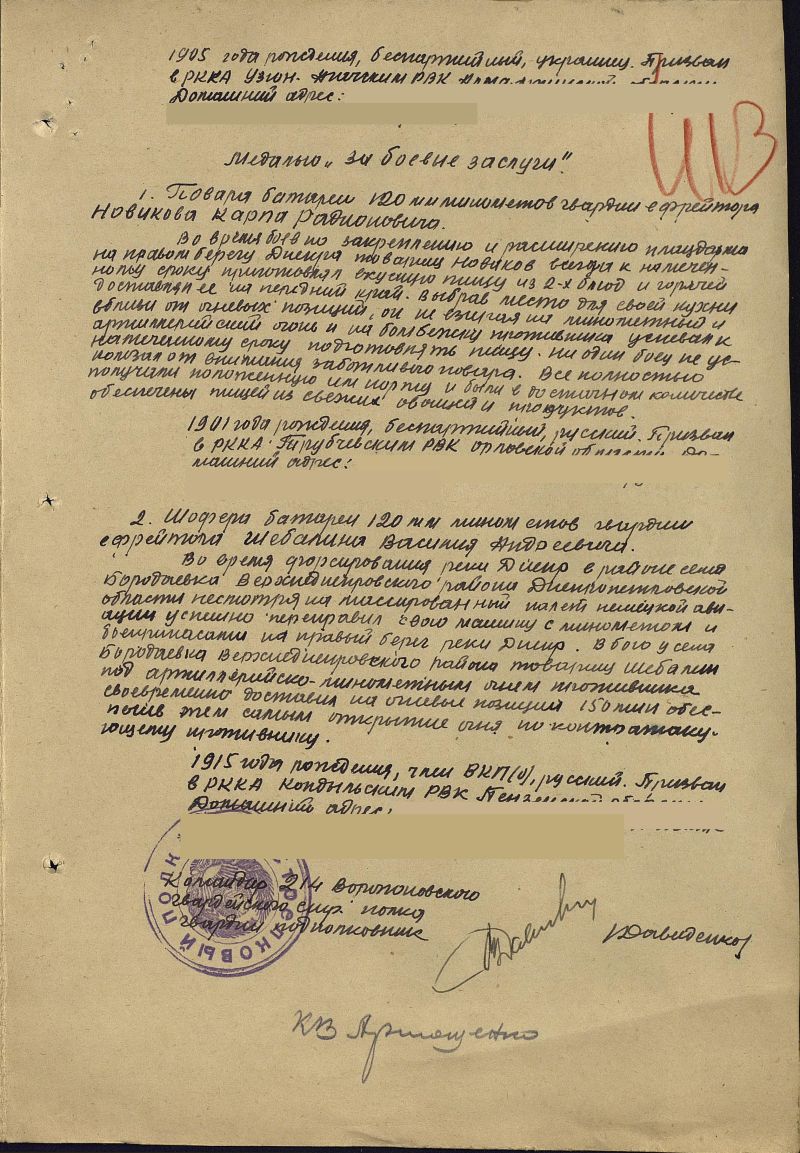 1905 года рождения, беспартийный, украинец. Призван
в РККА Узун- РВК
Домашний адрес:
ЦКВ
Медалью „за боевые заслуги“.
1. Повара батареи 120 мм минометов гвардии ефрейтора
Новикова Карпа Радионовича.
Во время боев по закреплению и расширению плацдарма
на правом берегу Днепра товарищ Новиков всегда к намечен-
ному сроку приготовлял вкусную пищу из 2-х блюд и горячей
доставлял ее на передний край. Выбрав место для своей кухни
вблизи от огневых позиций, он не взирая на минометный и
артиллерийский огонь и на бомбежку противника успевал к
намеченному сроку подготовлять пищу. Ни один боец не ус-
кользал от внимания заботливого повара. Все полностью
получали положенную им норму и были в достаточном количестве
обеспечены пищей из свежих овощей и продуктов.
1901 года рождения, беспартийный, русский. Призван
в РККА Трубчевским РВК Орловской области До-
машний адрес:
2. Шофера батареи 120 мм минометов гвардии
ефрейтора Шебалина Василия Андреевича.
Во время форсирования реки Днепр в районе села
Бородаевка Верхнеднепровского района Днепропетровской
области несмотря на массированный налет немецкой ави-
ации успешно переправил свою машину с минометом и
боеприпасами на правый берег реки Днепр. В бою у села
Бородаевка Верхнеднепровского района товарищ Шебалин
под артиллерийско-минометным огнем противника
своевременно доставил на огневые позиции 150 мин обес-
печив тем самым открытие огня по контратаку-
ющему противнику.
1915 года рождения, член ВКП(б), русский. Призван
в РККА Кондыльским РВК Пензенской области
Домашний адрес:
Командир 214 Воропоновского
гвардейского стр. полка
гвардии подполковник
Давиденко
КВ Артющенко